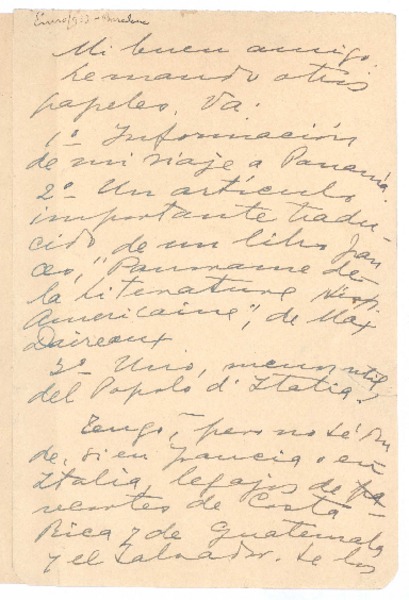 Mi buen amigo,
le mando otros
papeles. Va:
1º Información
de mi viaje a Panamá.
2º Un artículo
importante tradu-
cido de un libro fran
ces, "Panorame de
la literature Hisp.
Americaine", de Max
Daireaux
3º Uno, menos util,
del Popolo d'Italia.
Tengo, pero no sé don
de, si en Francia o en
Italia, legajos de
recortes de Costa
Rica y de Guatemala
y el Salvador. Se los